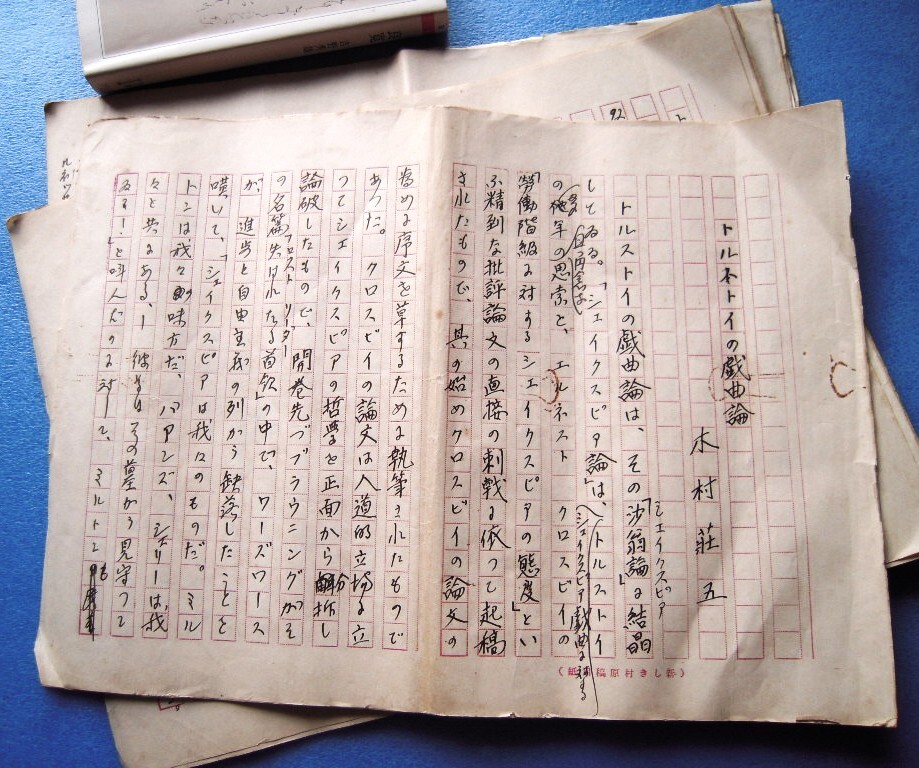 トルストイの戯曲論
木村荘五
トルストイの戯曲論は、その「沙翁論」に結晶
シェイクスピア
してゐる。「シェイクスピア論」は、トルストイ
の年の思索と、エルネスト クロスビイの
シェイクスピア戯曲に対する
「労働階級に対するシェイクスピアの態度」とい
ふ精到な批評論文の直接の刺戟に依つて起稿
されたもので、其の始めクロスビイの論文の
為めに序文を草するために執筆されたもので
あつた。クロスビイの論文は人道的立場に立
つてシェイクスピアの哲学を正面から分析し
論破したもので、開巻先づブラウニングがそ
の名篇「失はれたる首領」の中で、ワーズワース
ロスト リーダー
が進歩と自由主義の列から缺落したことを
嘆いて、「シェイクスピアは我々のものだ。ミル
トンは我々の味方だ、バアンズ、シェリーは、我
々と共にある、ー彼等はその墓から見守つて
ゐるー」と叫んだのに対して、ミルトンも
92
(新しき村原稿用紙)